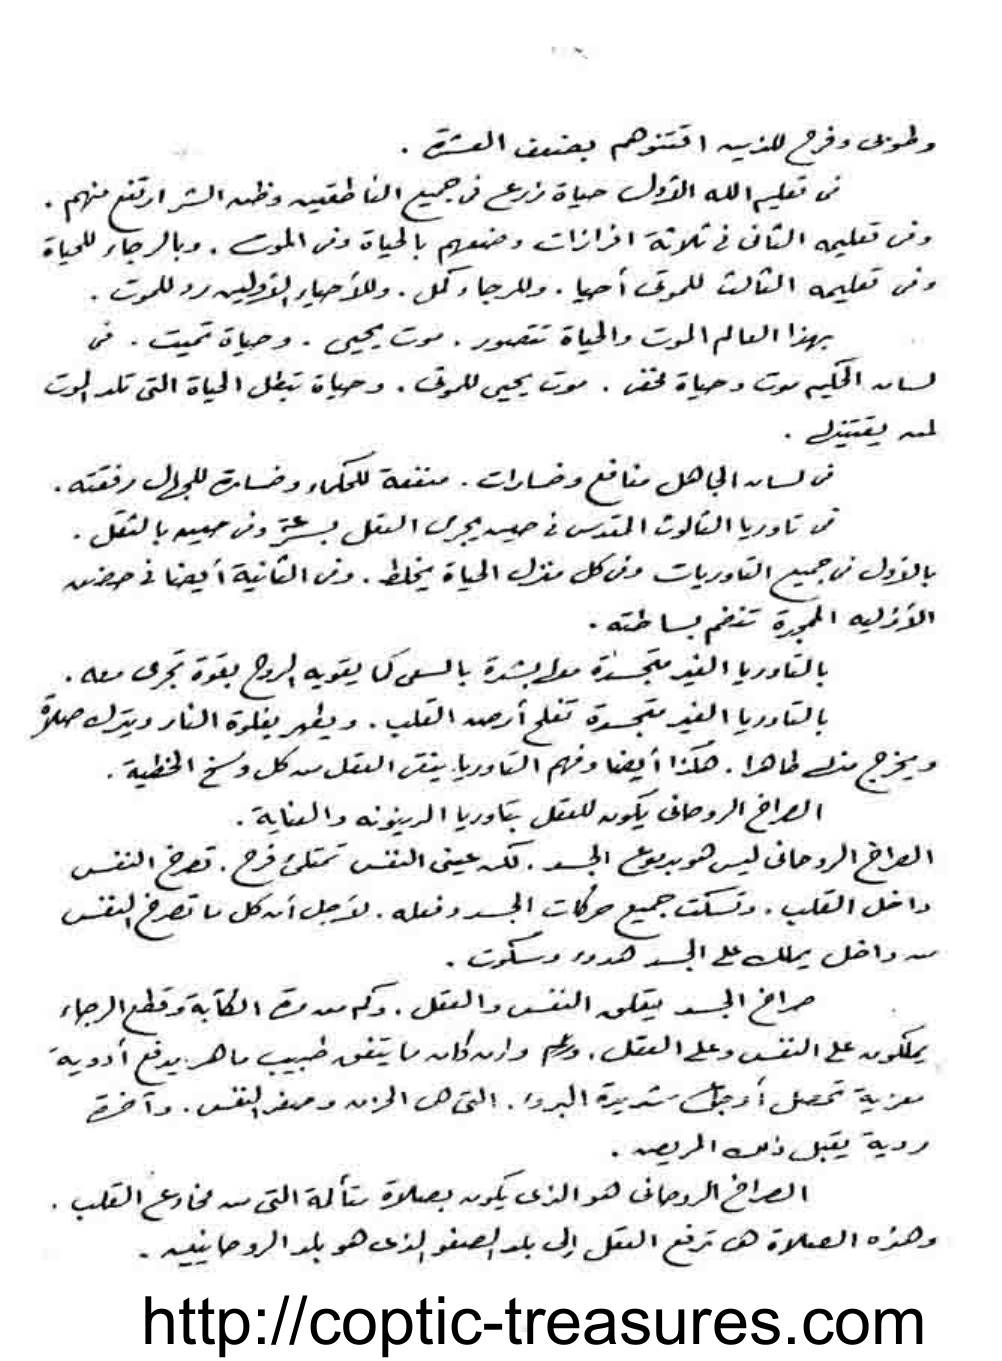 وطوبى وفرح للذين اقتنوهم بضعف العشرة .
فى تعليم الله الأول حياة زرع فى جميع الناطقين وظن الشر ارتفع منهم .
وفى تعليمه الثانى فى ثلاثة افرازات وضعهم بالحياة وفى الموت . وبالرجاء للحياة
وفى تعليمه الثالث للموتى أحيا . وللرجاء كمل . وللأحياء الأولين رد للموت .
بهذا العالم الموت والحياة تتصور . موت يحيى . وحياة تميت . فى
لسان الحكيم موت وحياة مخفى . موت يحيى للموتى . وحياة تبطل الحياة التى تلد الموت
لمن يقتنيها .
فى لسان الجاهل منافع وخسارات . منفعة للحكماء وخسارة للجهال رفقته .
فى تاوريا الثالوث المقدس فى حين يجرى العقل بسرعة وفى حين بالثقل .
بالأول فى جميع التاوريات وفى كل منزل الحياة يخلط . وفى الثانية أيضا فى حضن
الأزلية الممجدة تنضم بساطته .
بالتاوريا الغير متجسدة بالسعى كما يقويه الروح بقوة تجرى معه .
بالتاوريا الغير متجسدة تفلح أرض القلب . ويطهر بغلوة النار ويترك
ويخرج منه طاهرا . هكذا أيضا وفهم التاوريا ينقى العقل من كل وسخ الخطية .
الصراخ الروحانى يكون للعقل بتاوريا الدينونه والعناية .
الصراخ الروحانى ليس هو بدموع الجسد . لكن عينى النفس تمتلئ فرح . تصرخ النفس
داخل القلب . وتسكت جميع حركات الجسد وفعله . لأجل أن كل ما تصرخ النفس
من داخل يملك على الجسد هدوء وسكوت .
صراخ الجسد يقلق النفس والعقل . وكم من مرة الكآبة وقطع الرجاء
يملكون على النفس وعلى العقل . وان كان ما يتفق طبيب ماهر يدفع أدوية
معزية تحصل أوجاع شديدة البرد . التى هى الحزن وصغر النفس . وآخرة
ردية يقبل ذلك المريض .
الصراخ الروحانى هو الذى يكون بصلاة متألمة التى من مخادع القلب .
وهذه الصلاة هى ترفع العقل إلى بلد الصفو الذى هو بلد الروحانيين .
http://coptic-treasures.com